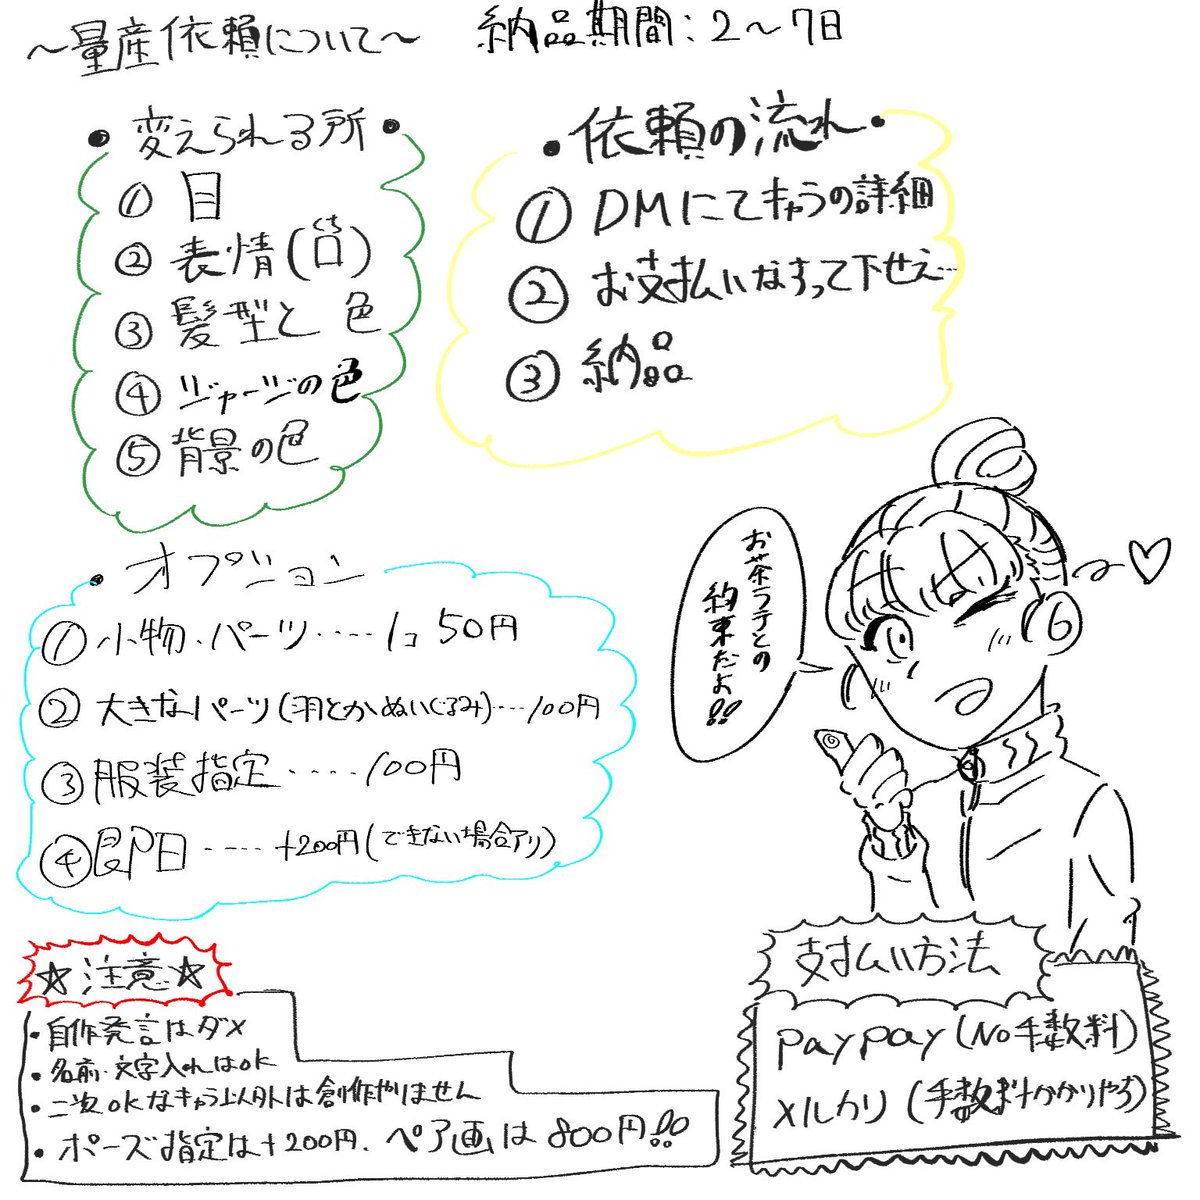 ～量産依頼について～
納品期間：2～7日
・変えられる所・
① 目
② 表情(口)
くち
③ 髪型と 色
④ ジャージの色
⑤ 背景の色
・依頼の流れ・
① DMにてキャラの詳細
② お支払いなすって下せえ…
③ 納品
・オプション
① 小物・パーツ‥‥1コ 50円
② 大きなパーツ(羽とかぬいぐるみ)…100円
③ 服装指定‥‥100円
④ 即日‥‥+200円(できない場合アリ)
お茶ラテとの
約束だよ!!
☆注意☆
・自作発言はダメ
・名前・文字入れはOK
・二次OKなキャラ以外は創作やりません
・ポーズ指定は+200円、ペア画は800円!!
支払い方法
paypay(No手数料)
メルカリ(手数料かかりやす)